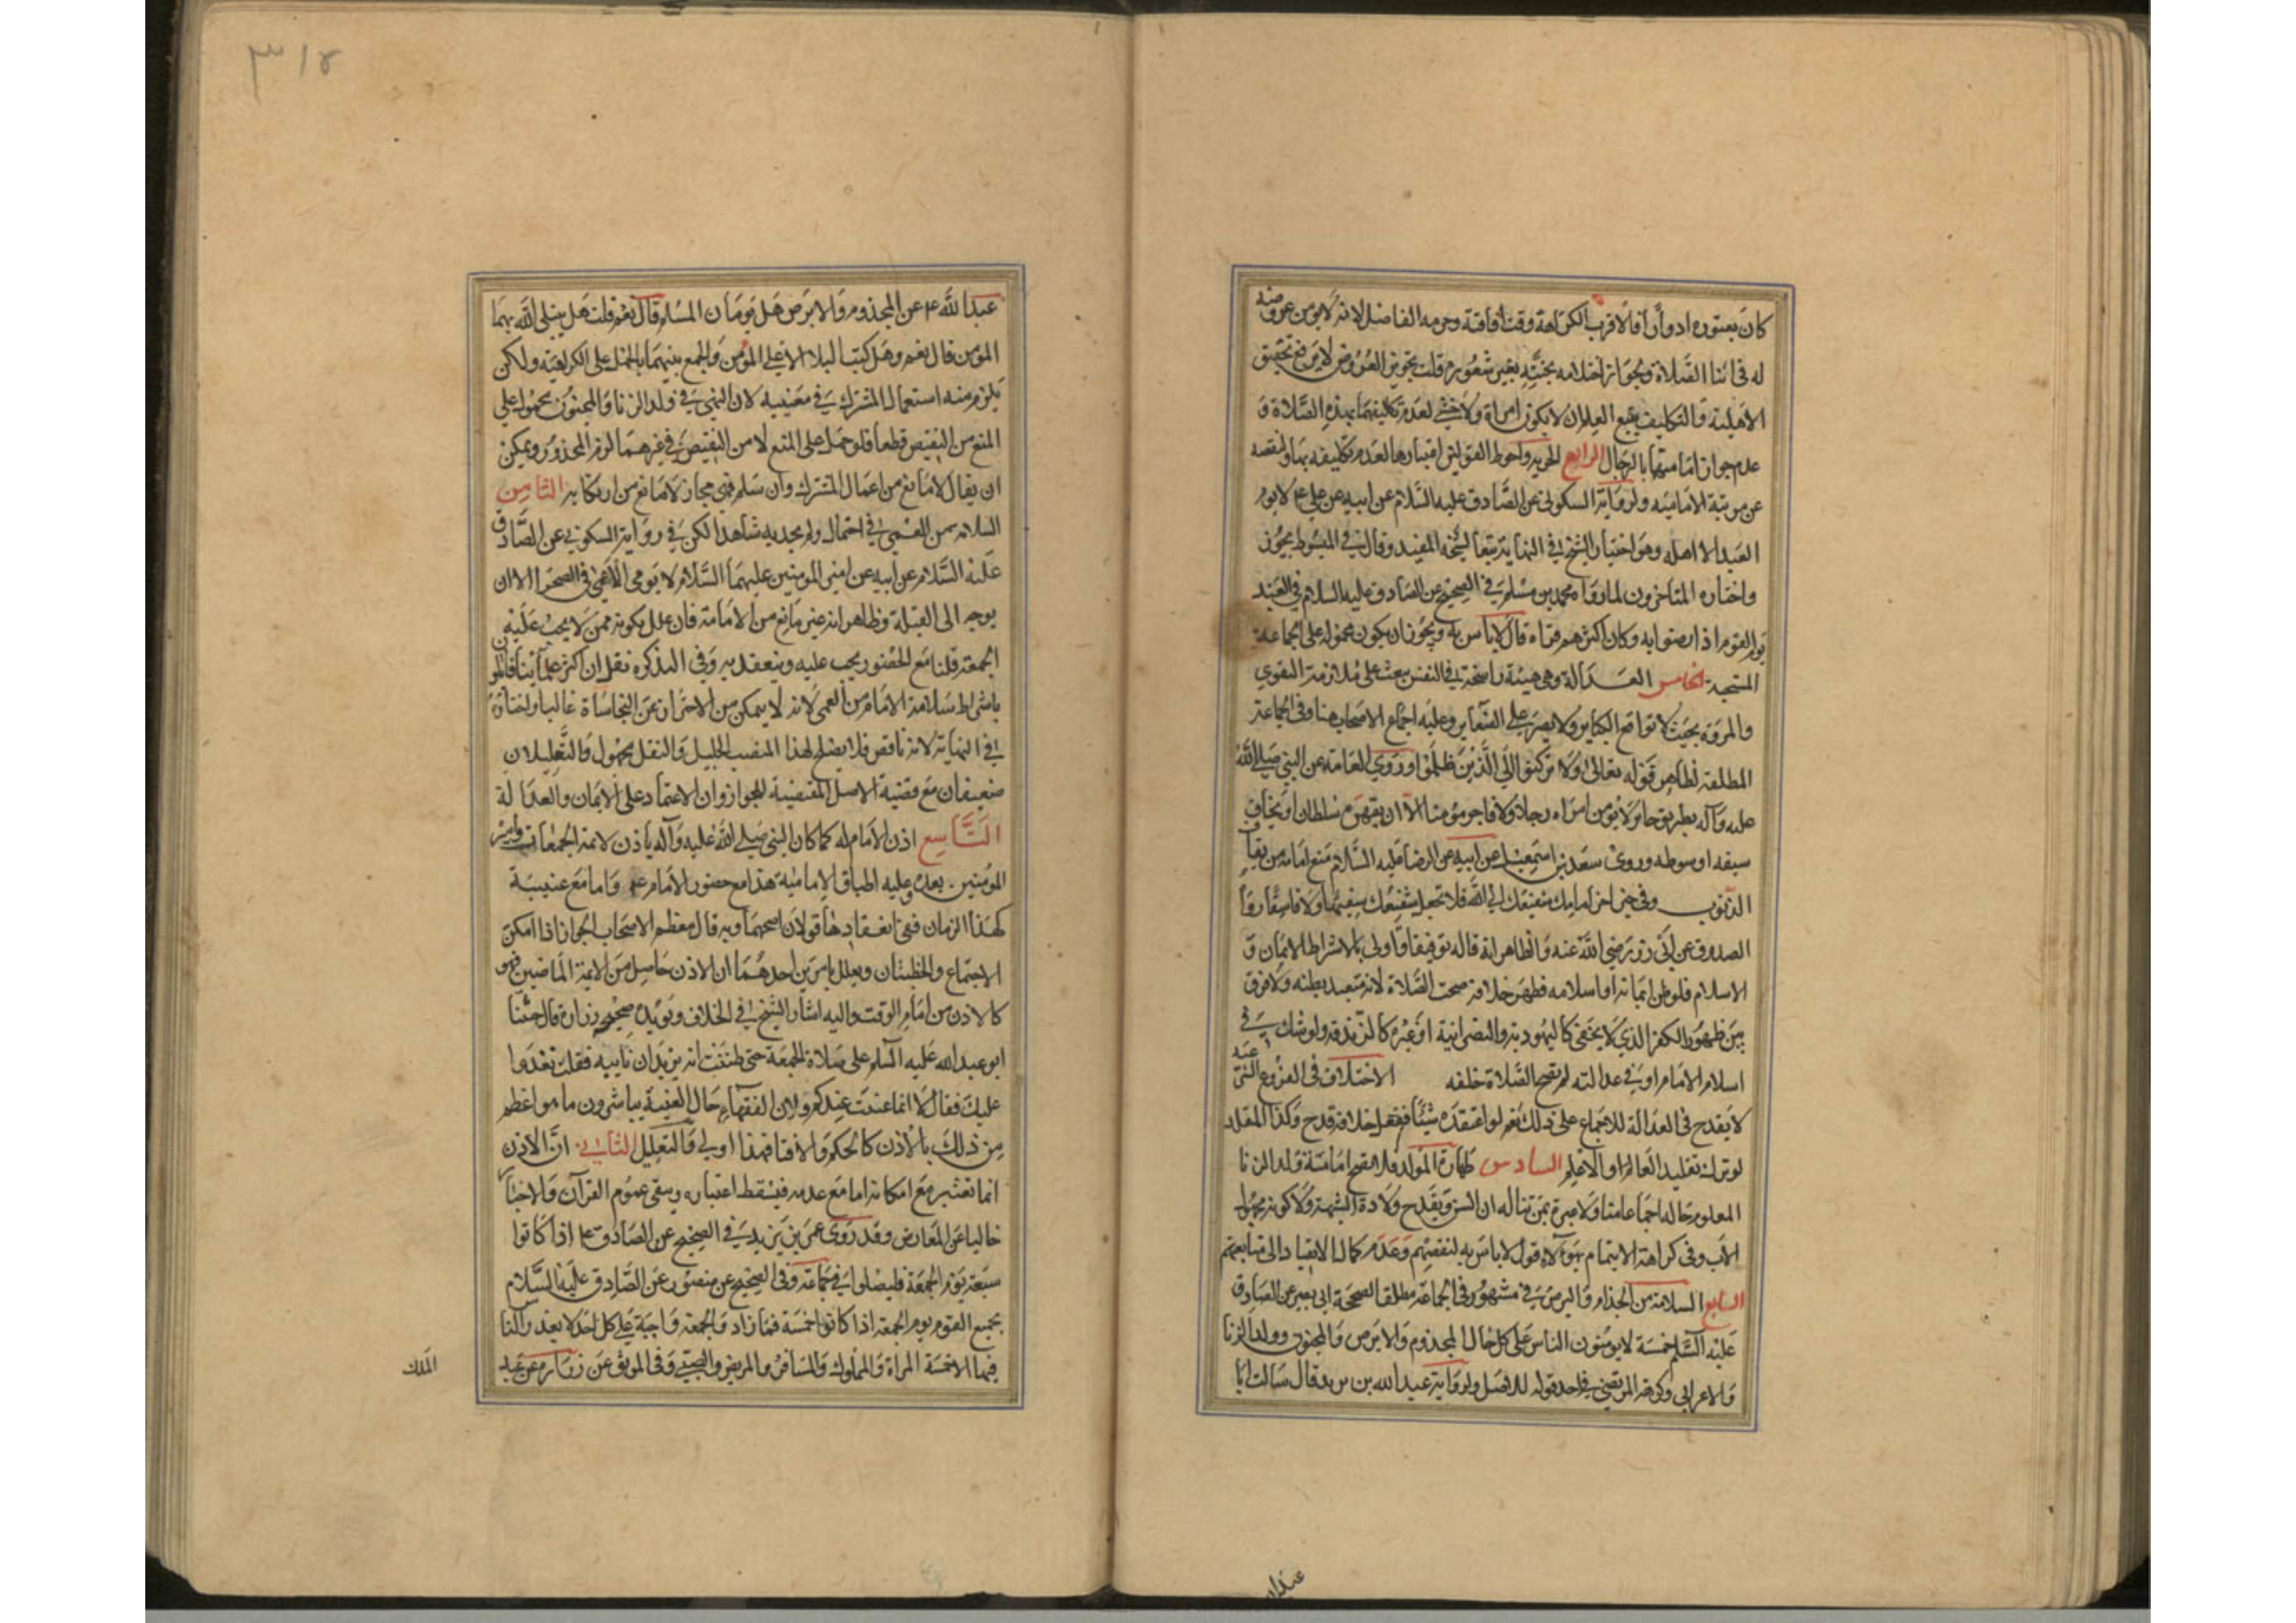 كان يعتوره ادوارا فالاقرب الكراهة وقت افاقته وحرمه الفاضل لانه لا يؤمن عروضه
له في اثنا الصلاة ويجواز احتلامه بجنته بغير شعوره قلت تجويز العروض لا يرفع تحقيق
الاهلية والتكليف يتبع العلم ان لا يكون امراة ولا خنثى لعدم تكليفهما بهذه الصلاة و
عدم جواز امامتهما بالرجال الرابع الحرية واحوط القولين اعتبارها لعدم تكليفه بها ولنقصه
عن مرتبة الامامية ولرواية السكوني عن الصادق عليه السلام عن ابيه عن علي ع لا يؤم
العبد الا اهله وهو اختيار الشيخ في النهاية تبعا لشيخه المفيد وقال في المبسوط يجوز
واختاره المتاخرون لما رواه محمد بن مسلم في الصحيح عن الصادق عليه السلام في العبد
يوم القوم اذا رضوا به وكان اكثرهم قراه قال لا باس به ويجوز ان يكون محموله على الجماعة
المستحبة الخامس العدالة وهي هيئة راسخة في النفس تبعث على ملازمة التقوي
والمروة بحيث لا تواقع الكباير ولا يصر على الصغاير وعليه اجماع الاصحاب هنا وفي الجماعة
المطلقة لظاهر قوله تعالى ولا تركنوا الي الذين ظلموا وروي العامة عن النبي صلى الله
عليه وآله بطريق جابر لا تؤمن امراه رجلا ولا فاجر مؤمنا الا ان يقهره سلطان او يخاف
سيفه او سوطه وروى سعد بن اسمعيل عن ابيه عن الرضا عليه السلام منع امامة من يقارف
الذنوب وفي خبر اخر امامك شفيعك الى الله فلا تجعل شفيعك سفيها ولا فاسقا رواه
الصدوق عن ابي ذر رضي الله عنه والظاهر انه قاله توقيفا واولى بالاشراط الايمان و
الاسلام فلو ظن ايمانه او اسلامه فظهر خلافه صحت الصلاة لانه متعبد بظنه ولا فرق
بين ظهور الكفر الذي لا يخفى كاليهودية والنصرانية او غيره كالزندقة ولو شك في
اسلام الامام او في عدالته لم تصح الصلاة خلفه الاختلاف في الفروع الشرعية
لا يقدح في العدالة للاجماع على ذلك نعم لو اعتقد شيئا ففعل خلافه قدح وكذا المقلد
لو ترك تقليد العالم او الاعلم السادس طهارة المولد فلا تصح امامته ولد الزنا
المعلوم حاله اجماعا منا ولا عبرة بمن تناله السن ولا تقدح ولادة الشبهة ولا كونه مجهول
الاب وفي كراهة الايتمام بهؤلاء قول لا باس به لنقصهم وعدم كمال الانقياد الى متابعتهم
السابع السلامة من الجذام والبرص في مشهور وفي الجماعة مطلقا لصحيحة ابي بصير عن الصادق
عليه السلم خمسة لا يؤمنون الناس على كل حال المجذوم والابرص والمجنون وولد الزنا
والاعرابي وكرهه المرتضى في احد قوليه للاصل ولرواية عبد الله بن يزيد قال سالت ابا
عبدا
٣١٤
عبد الله ع عن المجذوم والابرص هل يؤمان المسلم قال نعم قلت هل يبتلي الله بهما
المؤمن قال نعم وهل كتب البلا الا على المؤمن والجمع بينهما بالحمل على الكراهية ولكن
يلزم منه استعمال المشترك في معنييه لان النهي في ولد الزنا والمجنون محمول على
المنع من النقيض قطعا فلو حمل على المنع لا من النقيض في غيرهما لزم المحذور ويمكن
ان يقال لا مانع من اعمال المشترك وان سلم فهي مجاز لا مانع من ارتكابه الثامن
السلامة من العمي في احتمال ولم يجد به شاهدا لكن في رواية السكوني عن الصادق
عليه السلام عن ابيه عن امير المومنين عليهما السلام لا يؤم الاعمى في الصحرا الا ان
يوجه الى القبلة وظاهر انه غير مانع من الامامة فان علل بكونه ممن لا يجب عليه
الجمعة قلنا مع الحضور يجب عليه وينعقد به وفي التذكره نقل ان اكثر علمائنا قالوا
باشراط سلامة الامام من العمى لانه لا يتمكن من الاحتراز عن النجاساة غالبا واختاره
في النهاية لانه ناقص فلا يصلح لهذا المنصب الجليل والنقل مجهول والتعليلان
ضعيفان مع قضية الاصل المقتضية للجواز وان الاعتماد على الايمان والعدالة
التاسع اذن الامام له كما كان النبي صلى الله عليه وآله ياذن لائمة الجمعات وامير
المؤمنين بعده وعليه اطباق الامامية هذا مع حضور الامام ع واما مع غيبة
كهذا الزمان ففي انعقادها قولان اصحهما وبه قال معظم الاصحاب الجواز اذا امكن
الاجتماع والخطبتان ويعلل بامرين احدهما ان الاذن حاصل من الائمة الماضين فهو
كالاذن من امام الوقت واليه اشار الشيخ في الخلاف ويؤيده صحيحه زرارة قال حثنا
ابو عبد الله عليه السلم على صلاة الجمعة حتى ظننت انه يريد ان ناتيه فقلت نغدوا
عليك فقال لا انما عنيت عندكم ولان الفقهاء حال الغيبة يباشرون ما هو اعظم
من ذلك بالاذن كالحكم والافتا فهذا اولي والتعليل الثاني ان الاذن
انما تعتبر مع امكانه اما مع عدمه فيسقط اعتباره ويبقى عموم القرآن والاخبار
خاليا عن المعارض وقد روى عمر بن يزيد في الصحيح عن الصادق ع اذا كانوا
سبعة يوم الجمعة فليصلوا في جماعة وفي الصحيح عن منصور عن الصادق عليه السلام
يجمع القوم يوم الجمعة اذا كانوا خمسة فما زاد والجمعة واجبة على كل احد لا يعذر الناس
فيها الا خمسة المراة والمملوك والمسافر والمريض والصبي وفي الموثق عن زرارة عن عبد
الملك